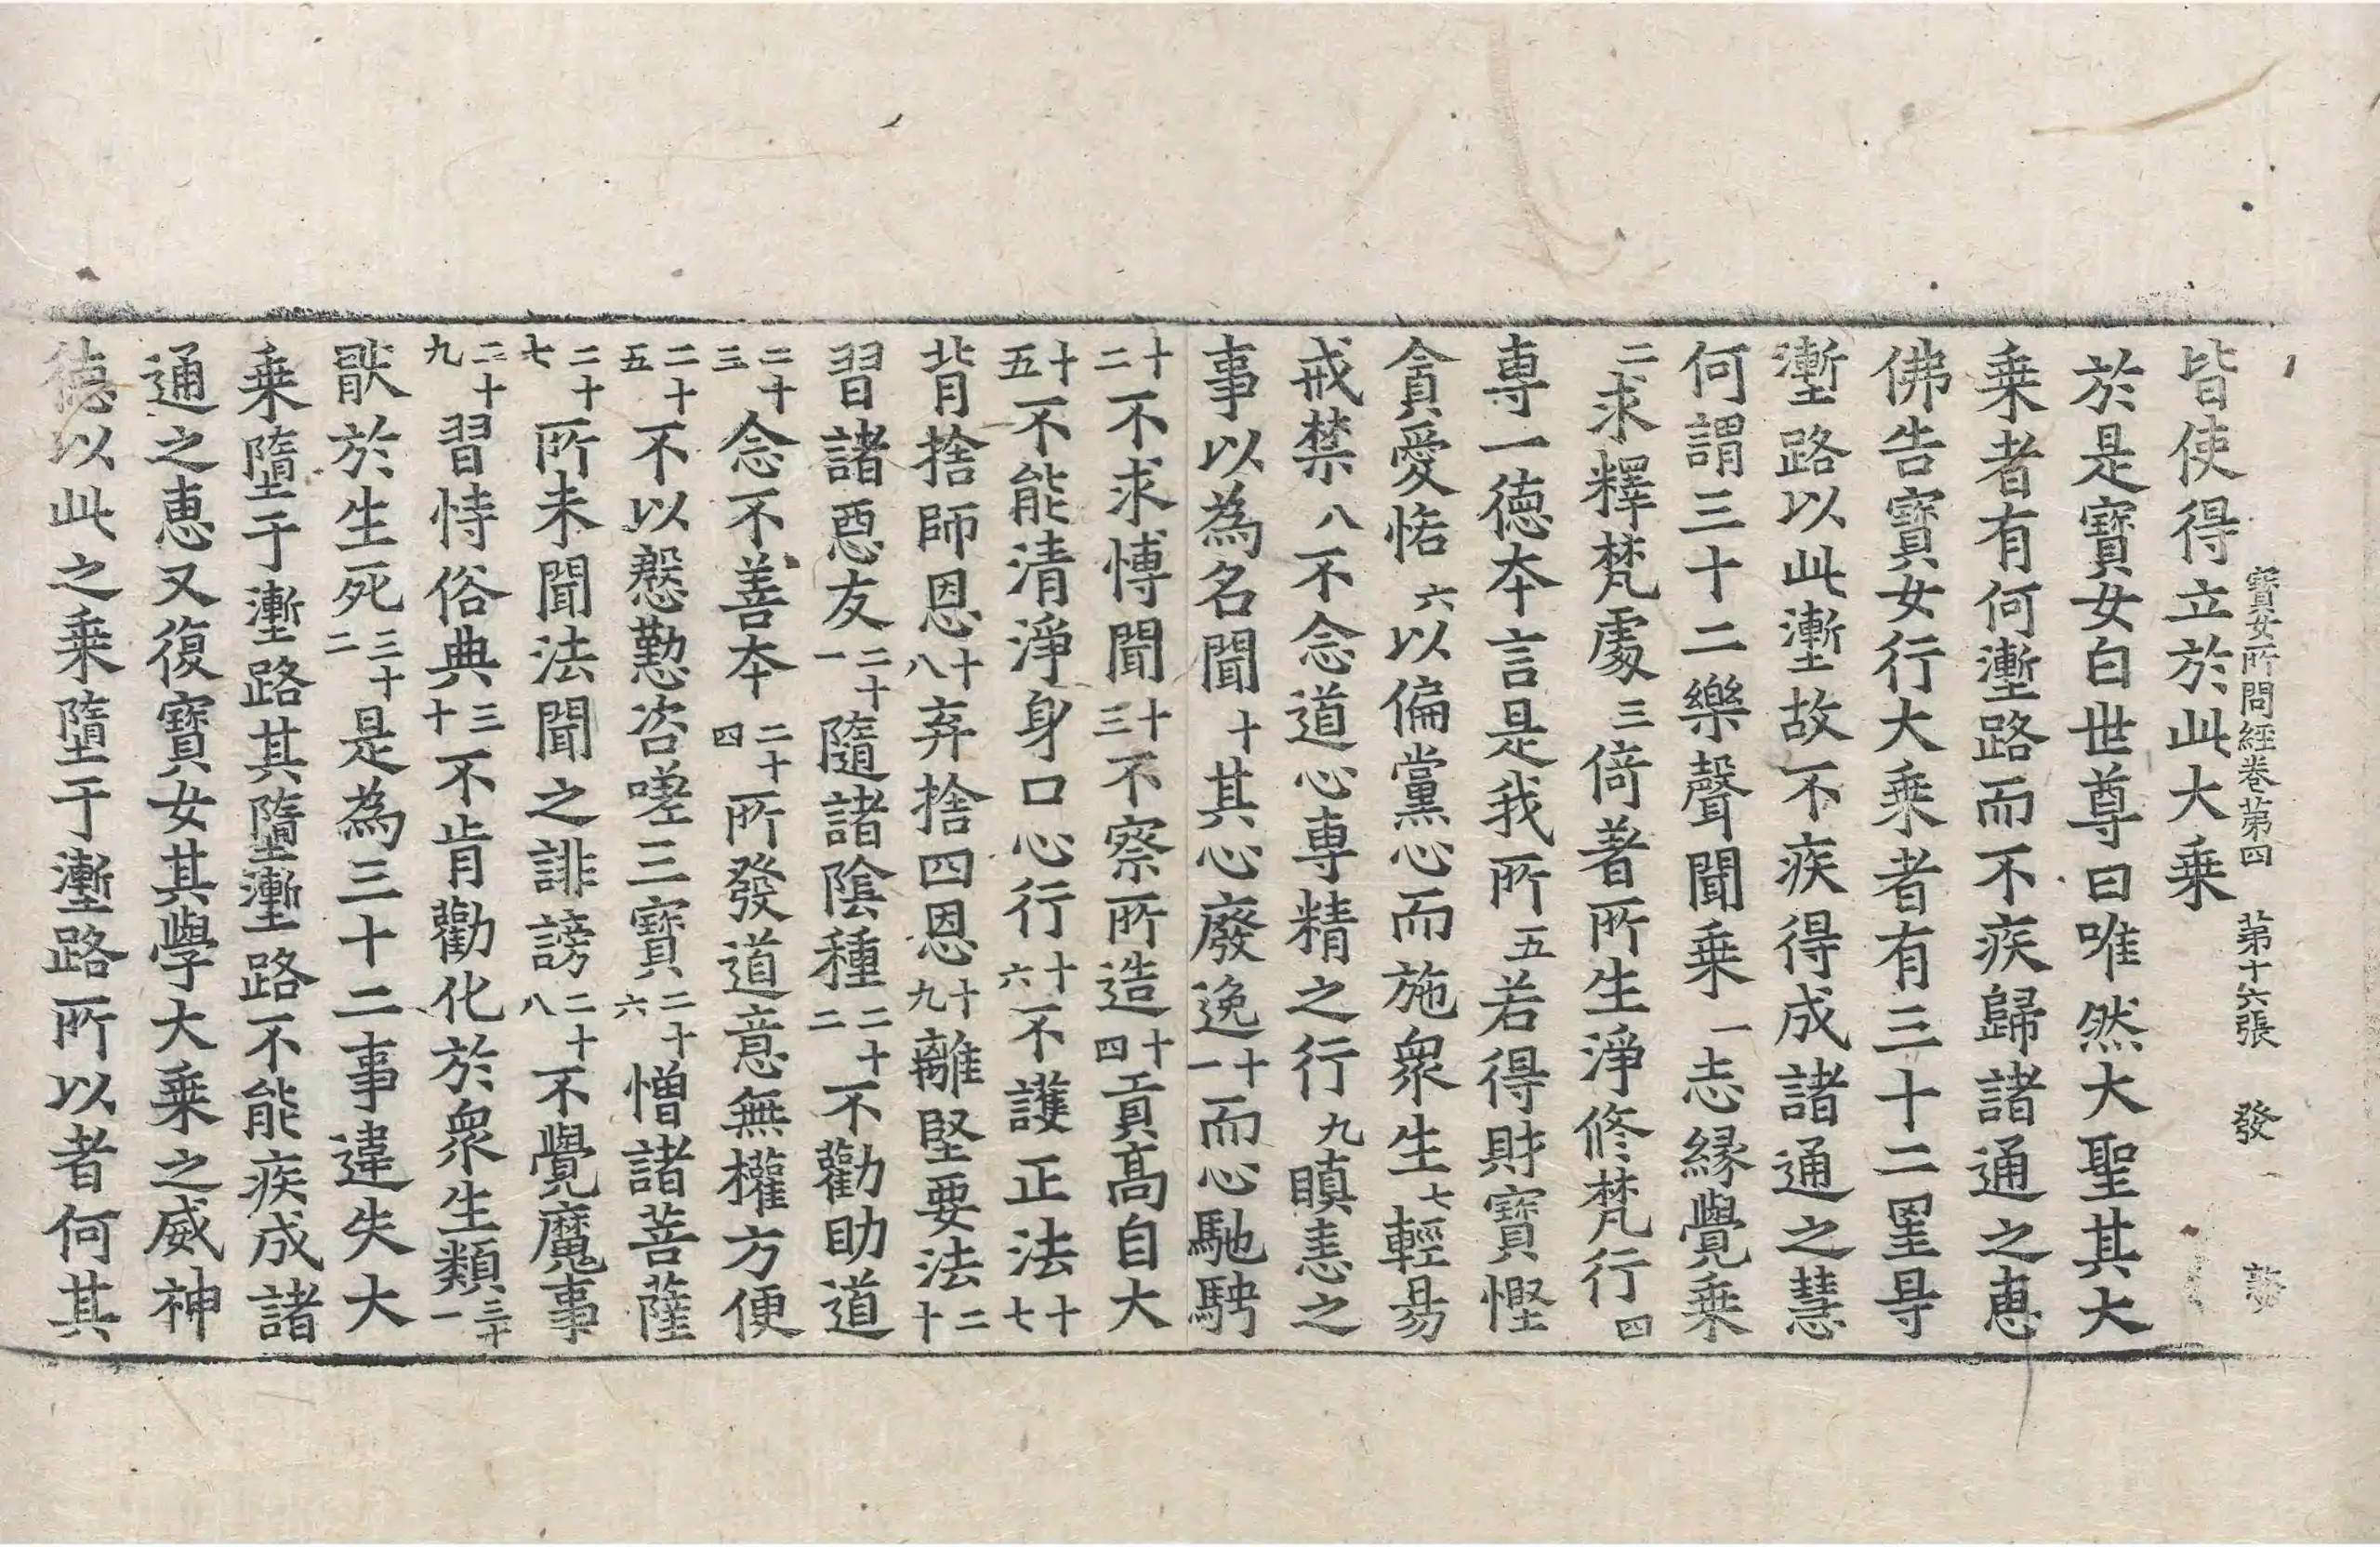 寶女所問經卷苐四　苐十六張　發
皆使得立於此大乗
於是寶女白世尊曰唯然大聖其大
乗者有何壍路而不疾歸諸通之惠
佛告寶女行大乗者有三十二罣㝵
壍路以此壍故不疾得成諸通之慧
何謂三十二樂聲聞乗一志縁覺乗
二求釋梵處三倚著所生淨修梵行四
専一德夲言是我所五若得財寶慳
貪愛悋六以偏黨心而施衆生七輕昜
戒禁八不念道心専精之行九瞋恚之
事以為名聞十其心廢逸十一而心馳騁
十二不求博聞十三不察所造十四貢髙自大
十五不能清淨身口心行十六不護正法十七
背捨師恩十八弃捨四恩十九離堅要法二十
習諸惡友二十一隨諸陰種二十二不勸助道
二十三念不善夲二十四所發道意無權方便
二十五不以慇懃咨嗟三寶二十六憎諸菩薩
二十七所未聞法聞之誹謗二十八不覺魔事
二十九習恃俗典三十不肯勸化於衆生類三十一
猒於生死三十二是為三十二事違失大
乗墮于壍路其墮壍路不能疾成諸
通之惠又復寶女其學大乗之威神
德以此之乗墮于壍路所以者何其